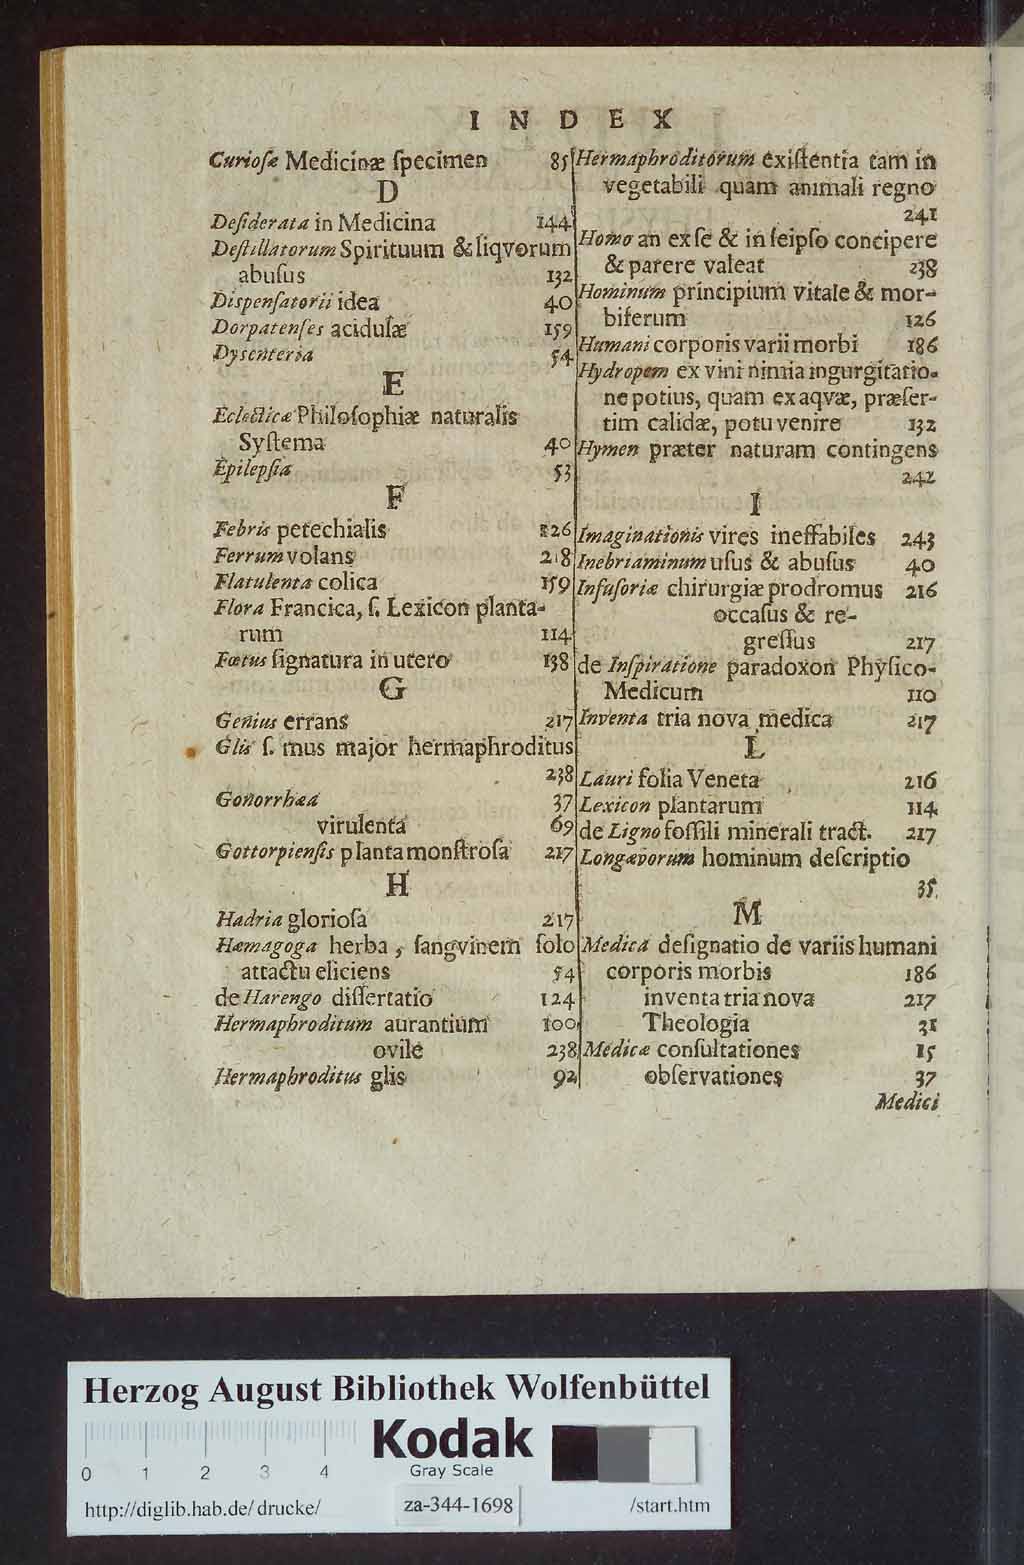 INDEX
Curioſæ Medicinæ ſpecimen 85
D
Deſiderata in Medicina 144
Deſtillatorum Spirituum & liqvorum
abuſus 132
Diſpenſatorii idea 40
Dorpatenſes acidulæ 159
Dysenteria 54
E
Eclecticæ Philoſophiæ naturalis
Syſtema 40
Epilepſia 53
F
Febris petechialis 226
Ferrum volans 218
Flatulenta colica 159
Flora Francica, ſ. Lexicon planta-
rum 114
Fœtus ſignatura in utero 138
G
Genius errans 217
Glis ſ. mus major hermaphroditus
238
Gonorrhæa 37
virulenta 69
Gottorpienſis planta monſtroſa 217
H
Hadria glorioſa 217
Hæmagoga herba, ſangvinem ſolo
attactu eliciens 54
de Harengo diſſertatio 124
Hermaphroditum aurantium 100
ovile 238
Hermaphroditus glis 92
Hermaphroditorum exiſtentia tam in
vegetabili quam animali regno
241
Homo an ex ſe & in ſeipſo concipere
& parere valeat 238
Hominum principium vitale & mor-
biferum 126
Humani corporis varii morbi 186
Hydropem ex vini nimia ingurgitatio-
ne potius, quam ex aqvæ, præſer-
tim calidæ, potu venire 132
Hymen præter naturam contingens
242
I
Imaginationis vires ineffabiles 243
Inebriaminum uſus & abuſus 40
Infuſoriæ chirurgiæ prodromus 216
occaſus & re-
greſſus 217
de Inſpiratione paradoxon Phyſico-
Medicum 110
Inventa tria nova medica 217
L
Lauri folia Veneta 216
Lexicon plantarum 114
de Ligno foſſili minerali tract. 217
Longævorum hominum deſcriptio
35.
M
Medica deſignatio de variis humani
corporis morbis 186
inventa tria nova 217
Theologia 31
Medicæ conſultationes 15
obſervationes 37
Medici
Herzog August Bibliothek Wolfenbüttel
Kodak
Gray Scale
0 1 2 3 4
http://diglib.hab.de/drucke/ za-344-1698 /start.htm